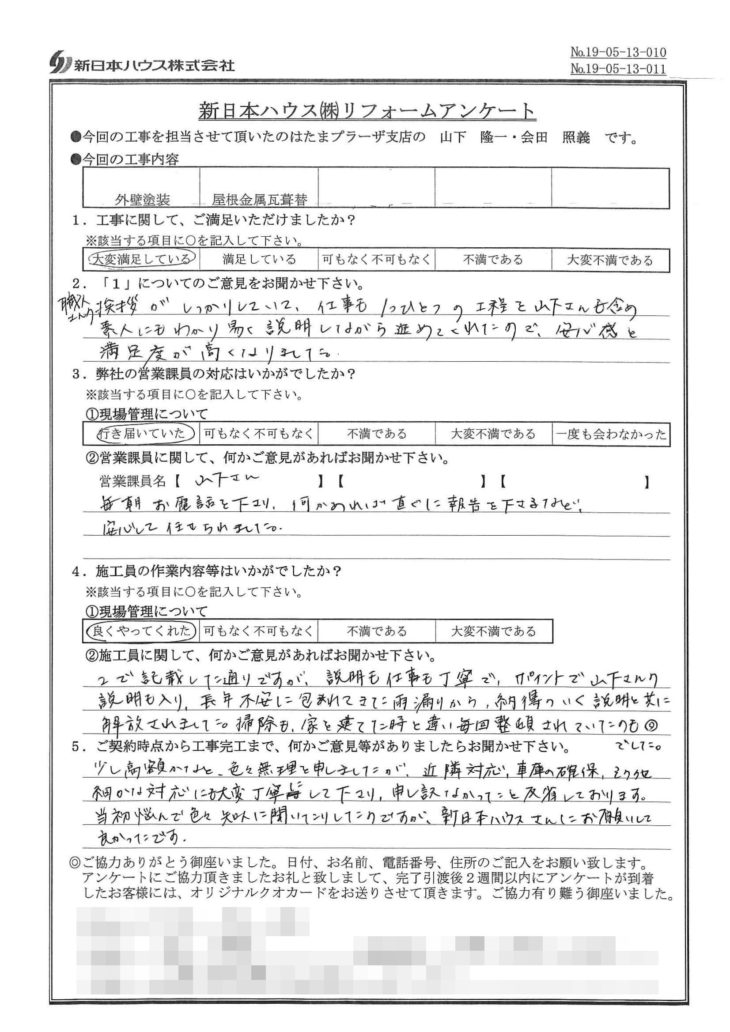 新日本ハウス株式会社
№19-05-13-010
№19-05-13-011
新日本ハウス㈱リフォームアンケート
●今回の工事を担当させて頂いたのはたまプラーザ支店の　山下　隆一・会田　照義　です。
●今回の工事内容
外壁塗装　屋根金属瓦葺替
1．工事に関して、ご満足いただけましたか？
※該当する項目に○を記入して下さい。
大変満足している　満足している　可もなく不可もなく　不満である　大変不満である
2．「1」についてのご意見をお聞かせ下さい。
職人さんの挨拶がしっかりしていて、仕事も1つひとつの工程を山下さんも含め
素人にもわかり易く説明しながら進めてくれたので、安心感と
満足度が高くなりました。
3．弊社の営業課員の対応はいかがでしたか？
※該当する項目に○を記入して下さい。
①現場管理について
行き届いていた　可もなく不可もなく　不満である　大変不満である　一度も会わなかった
②営業課員に関して、何かご意見があればお聞かせ下さい。
営業課員名【　山下さん　】【　】【　】
毎朝お電話を下さり、何かあれば直ぐに報告を下さるなど、
安心して任せられました。
4．施工員の作業内容等はいかがでしたか？
※該当する項目に○を記入して下さい。
①現場管理について
良くやってくれた　可もなく不可もなく　不満である　大変不満である
②施工員に関して、何かご意見があればお聞かせ下さい。
2で記載した通りですが、説明も仕事も丁寧で、ポイントで山下さんの
説明も入り、長年不安に包まれてきた雨漏りから、納得のいく説明と共に
解放されました。掃除も、家を建てた時と違い毎回整頓されていたのも◎
でした。
5．ご契約時点から工事完工まで、何かご意見等がありましたらお聞かせ下さい。
少し高額かなと、色々無理を申しましたが、近隣対応、車庫の確保、その他
細かな対応にも大変丁寧にして下さり、申し訳なかったと反省しております。
当初悩んで色々知人に聞いたりしたのですが、新日本ハウスさんにお願いして
良かったです。
◎ご協力ありがとう御座いました。日付、お名前、電話番号、住所のご記入をお願い致します。
アンケートにご協力頂きましたお礼と致しまして、完了引渡後2週間以内にアンケートが到着
したお客様には、オリジナルクオカードをお送りさせて頂きます。ご協力有り難う御座いました。